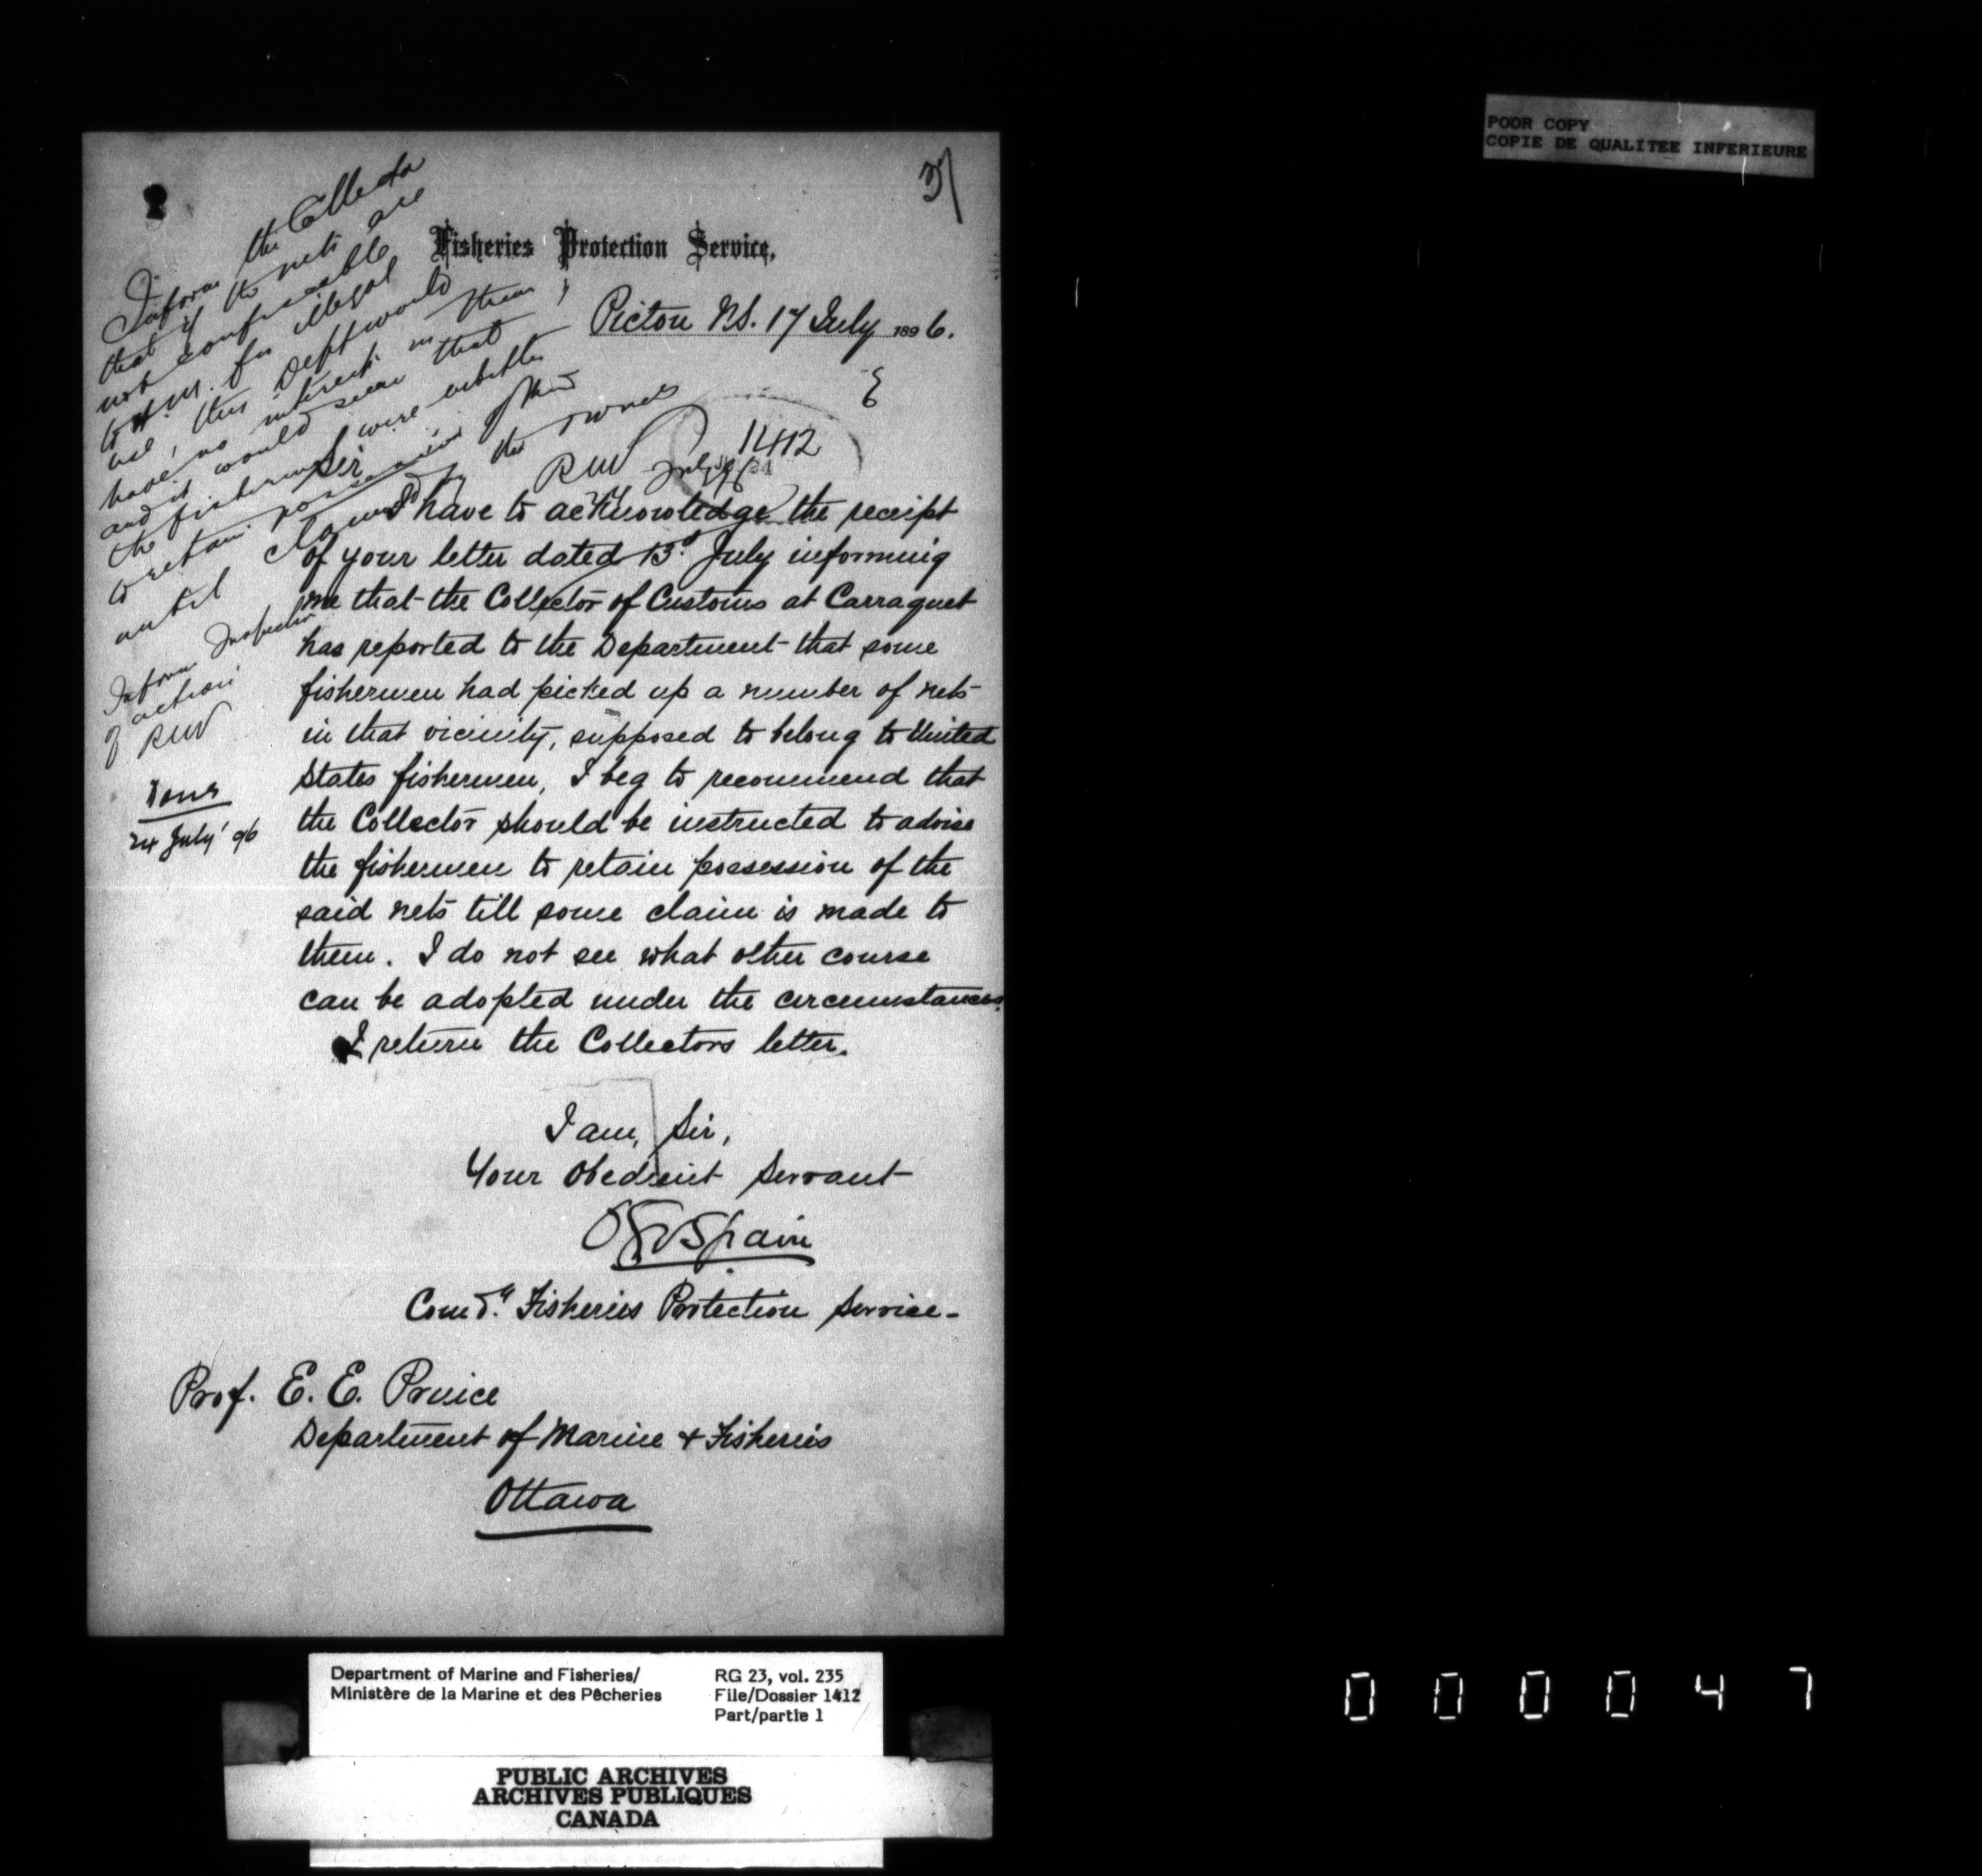 POOR COPY
COPIE DE QUALITEE INFERIEURE
37
Fisheries Protection Service,
Pictou N.S. 17 July 1896.
1412
Inform the Collector
that if the nets are
not confiscable
to H.M. for illegal
use, this Deptt would
have no interest in them;
and it would seem that
the fishermen were entitled
to retain possession of them
until claimed by the owner
RW
July 96
Inform Inspector
of action
RW
Done
24 July '96
Sir
I have to acknowledge the receipt
of your letter dated 13d July informing
me that the Collector of Customs at Carraquet
has reported to the Department that some
fishermen had picked up a number of nets
in that vicinity, supposed to belong to United
States fishermen, I beg to recommend that
the Collector should be instructed to advise
the fishermen to retain possession of the
said nets till some claim is made to
them. I do not see what other course
can be adopted under the circumstances.
I return the Collectors letter.
I am, Sir,
Your Obedient Servant
OGV Spain
Comdg. Fisheries Protection Service-
Prof. E. E. Prince
Department of Marine & Fisheries
Ottawa
Department of Marine and Fisheries/
Ministère de la Marine et des Pêcheries
RG 23, vol. 235
File/Dossier 1412
Part/partie 1
PUBLIC ARCHIVES
ARCHIVES PUBLIQUES
CANADA
000047